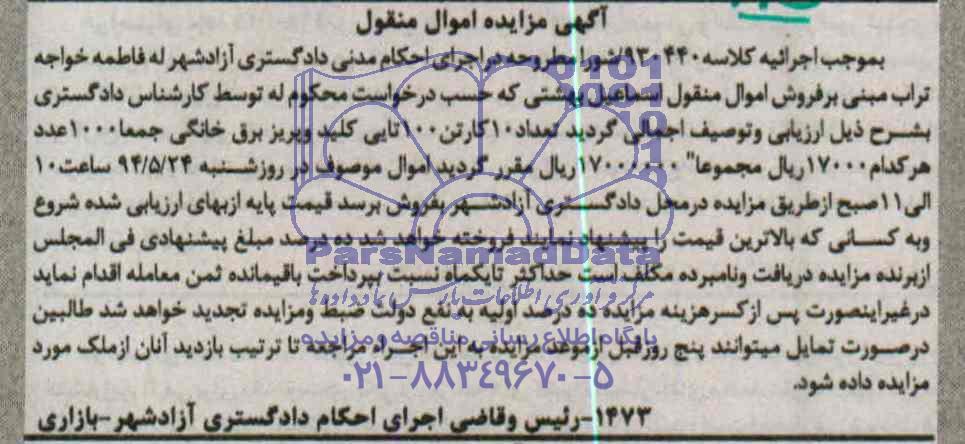 آگهی مزایده اموال منقول
بموجب اجرائیه کلاسه ۹۳۰۴۴۰/شورا مطروحه در اجرای احکام مدنی دادگستری آزادشهر له فاطمه خواجه
تراب مبنی برفروش اموال منقول اسماعیل بهشتی که حسب درخواست محکوم له توسط کارشناس دادگستری
بشرح ذیل ارزیابی وتوصیف اجمالی گردید تعداد ۱۰کارتن ۱۰۰تایی کلید وپریز برق خانگی جمعا ۱۰۰۰عدد
هرکدام ۱۷۰۰۰ریال مجموعا" ۱۷۰۰۰۰۰۰ریال مقرر گردید اموال موصوف در روزشنبه ۹۴/۵/۲۴ ساعت ۱۰
الی ۱۱صبح ازطریق مزایده درمحل دادگستری آزادشهر بفروش برسد قیمت پایه ازبهای ارزیابی شده شروع
وبه کسانی که بالاترین قیمت را پیشنهاد نمایند فروخته خواهد شد ده درصد مبلغ پیشنهادی فی المجلس
ازبرنده مزایده دریافت ونامبرده مکلف است حداکثر تایکماه نسبت بپرداخت باقیمانده ثمن معامله اقدام نماید
درغیراینصورت پس ازکسرهزینه مزایده ده درصد اولیه به نفع دولت ضبط ومزایده تجدید خواهد شد طالبین
درصورت تمایل میتوانند پنج روزقبل ازموعد مزایده به این اجراء مراجعه تا ترتیب بازدید آنان ازملک مورد
مزایده داده شود.
۱۴۷۳-رئیس وقاضی اجرای احکام دادگستری آزادشهر-بازاری
ParsNamadData
پایگاه اطلاع رسانی مناقصه و مزایده
۰۲۱-۸۸۳۴۹۶۷۰-۵